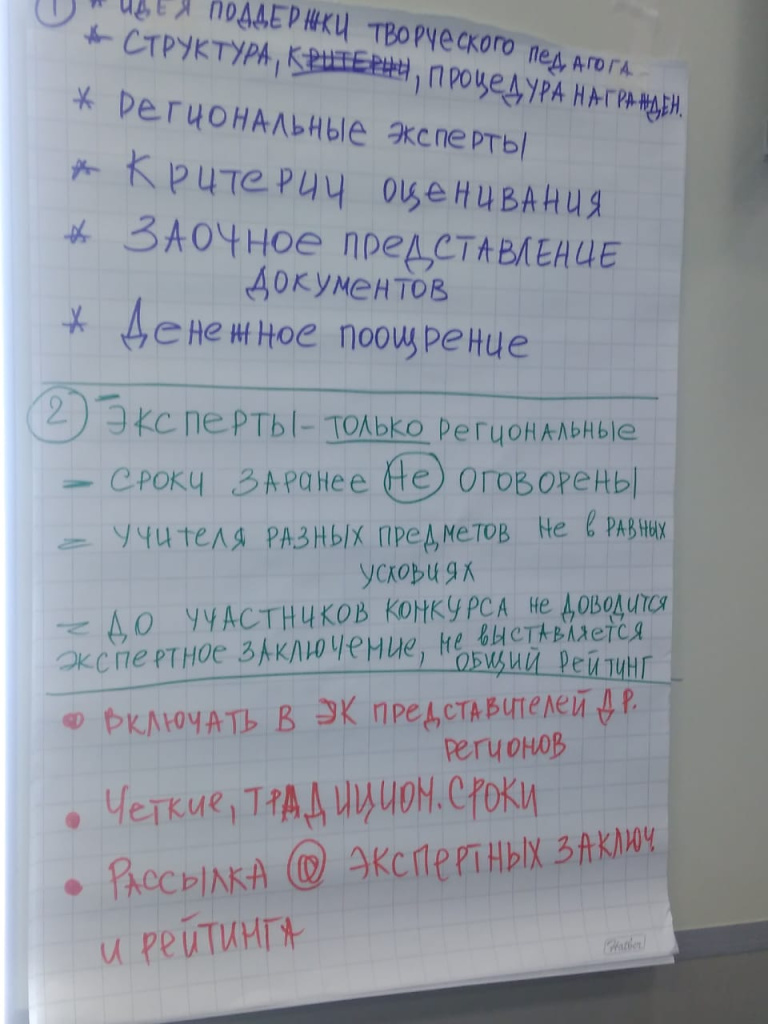 ① * ИДЕЯ ПОДДЕРЖКИ ТВОРЧЕСКОГО ПЕДАГОГА
* СТРУКТУРА, КРИТЕРИИ, ПРОЦЕДУРА НАГРАЖДЕН.
* РЕГИОНАЛЬНЫЕ ЭКСПЕРТЫ
* КРИТЕРИИ ОЦЕНИВАНИЯ
* ЗАОЧНОЕ ПРЕДСТАВЛЕНИЕ
ДОКУМЕНТОВ
* ДЕНЕЖНОЕ ПООЩРЕНИЕ
② - ЭКСПЕРТЫ - ТОЛЬКО РЕГИОНАЛЬНЫЕ
- СРОКИ ЗАРАНЕЕ НЕ ОГОВОРЕНЫ
- УЧИТЕЛЯ РАЗНЫХ ПРЕДМЕТОВ НЕ В РАВНЫХ
УСЛОВИЯХ
- ДО УЧАСТНИКОВ КОНКУРСА НЕ ДОВОДИТСЯ
ЭКСПЕРТНОЕ ЗАКЛЮЧЕНИЕ, НЕ ВЫСТАВЛЯЕТСЯ
ОБЩИЙ РЕЙТИНГ
• ВКЛЮЧАТЬ В ЭК ПРЕДСТАВИТЕЛЕЙ ДР.
РЕГИОНОВ
• ЧЕТКИЕ, ТРАДИЦИОН. СРОКИ
• РАССЫЛКА @ ЭКСПЕРТНЫХ ЗАКЛЮЧ.
И РЕЙТИНГА